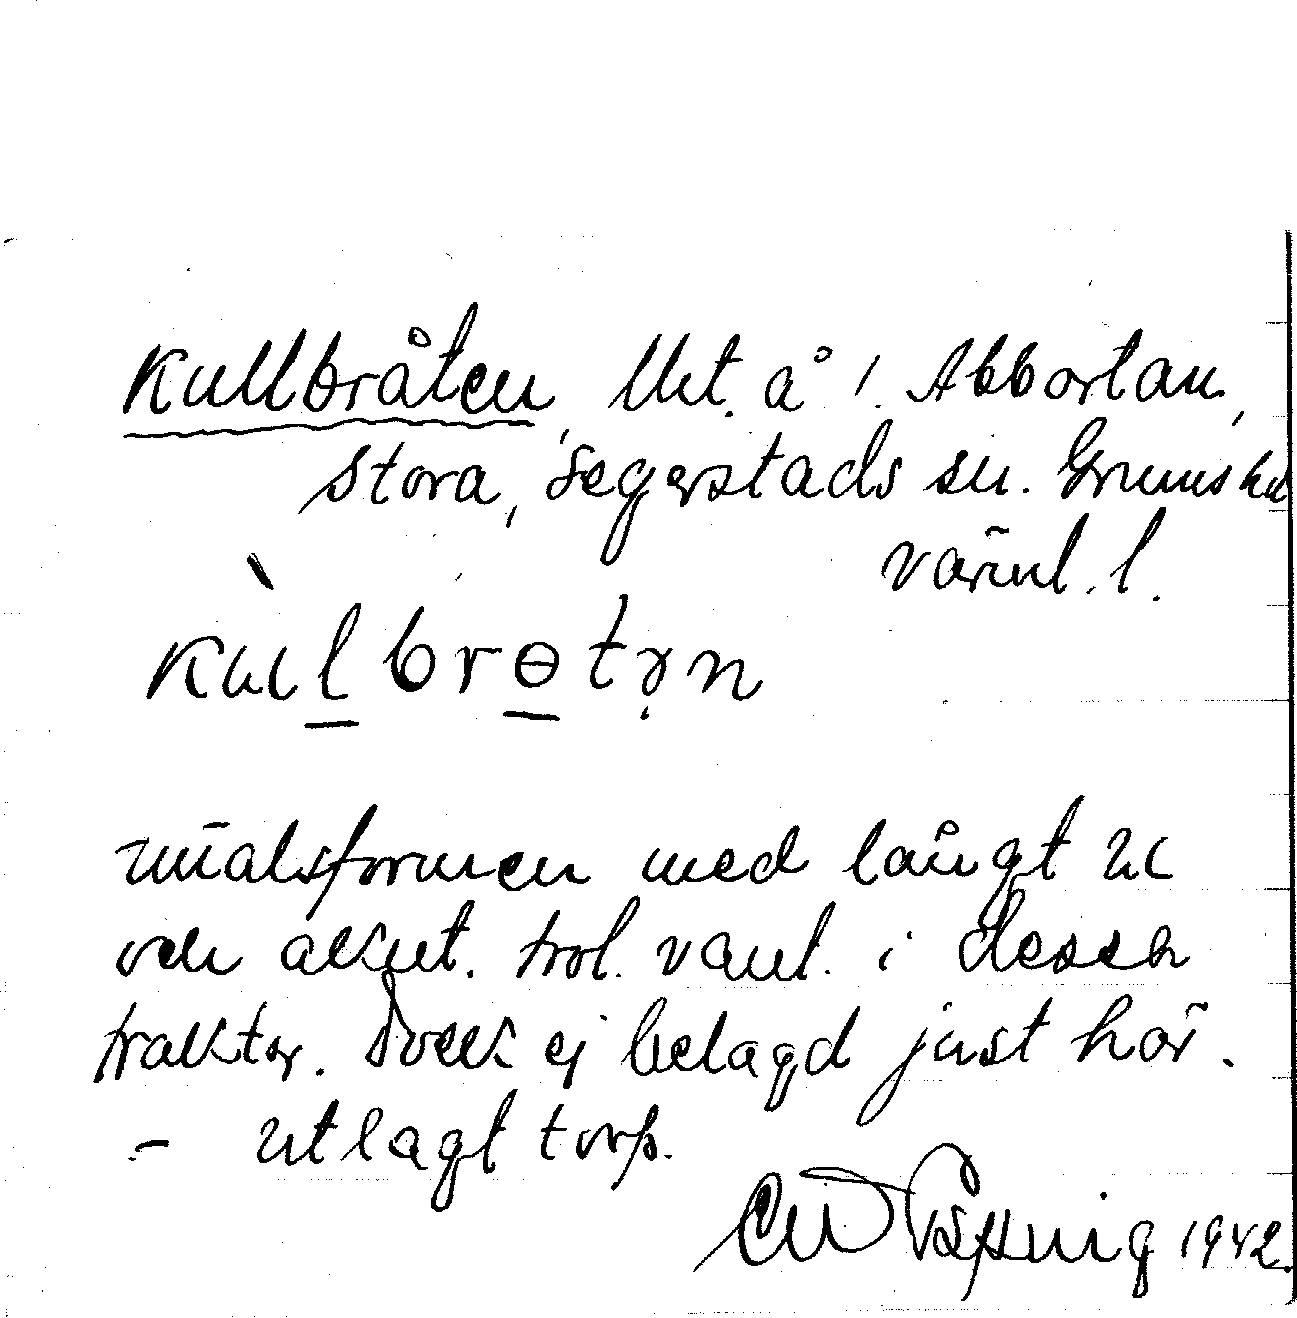 Kullbråten, Uct. å i. Abbortan,
Stora, Segerstads sn. Grums hd
Värml. l.
Kùlbrɵtɤ̣n
målsformen med långt u
och akut. trol. vanl. i dessa
trakter. Dock ej belagd just här.
- utlagt torp.
1942.